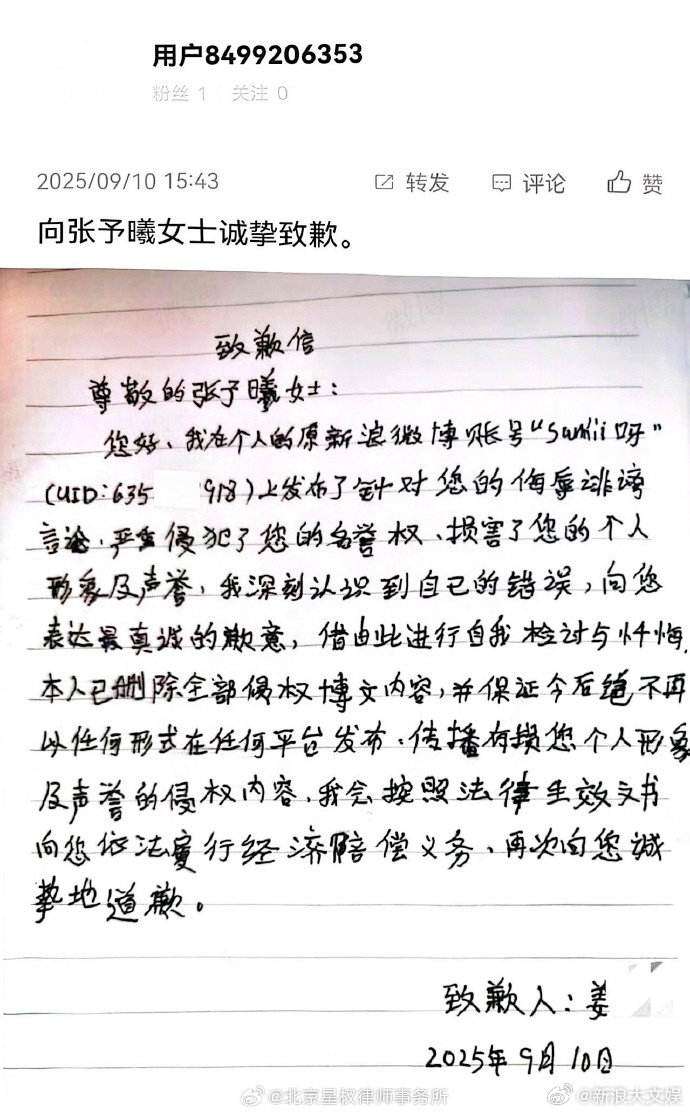 用户8499206353
粉丝 1 关注 0
2025/09/10 15:43 转发 评论 赞
向张予曦女士诚挚致歉。
致歉信
尊敬的张予曦女士：
您好、我在个人的原新浪微博账号“Sunkii呀”
(UID:635 918)上发布了针对您的侮辱诽谤
言论、严重侵犯了您的名誉权、损害了您的个人
形象及声誉，我深刻认识到自己的错误，向您
表达最真诚的歉意，借由此进行自我检讨与忏悔，
本人已删除全部侵权博文内容，并保证今后绝不再
以任何形式在任何平台发布、传播有损您个人形象
及声誉的侵权内容，我会按照法律生效文书
向您依法履行经济赔偿义务、再次向您诚
挚地道歉。
致歉人：姜
2025年9月10日
@北京星权律师事务所 @新浪大文娱